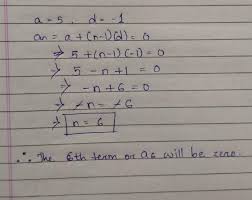 a = 5, d = -1
an = a + (n-1)(d) = 0
⇒ 5 + (n-1) (-1) = 0
⇒ 5 - n + 1 = 0
⇒ -n + 6 = 0
⇒ -n = -6
⇒ n = 6
∴ The 6th term or a6 will be zero.